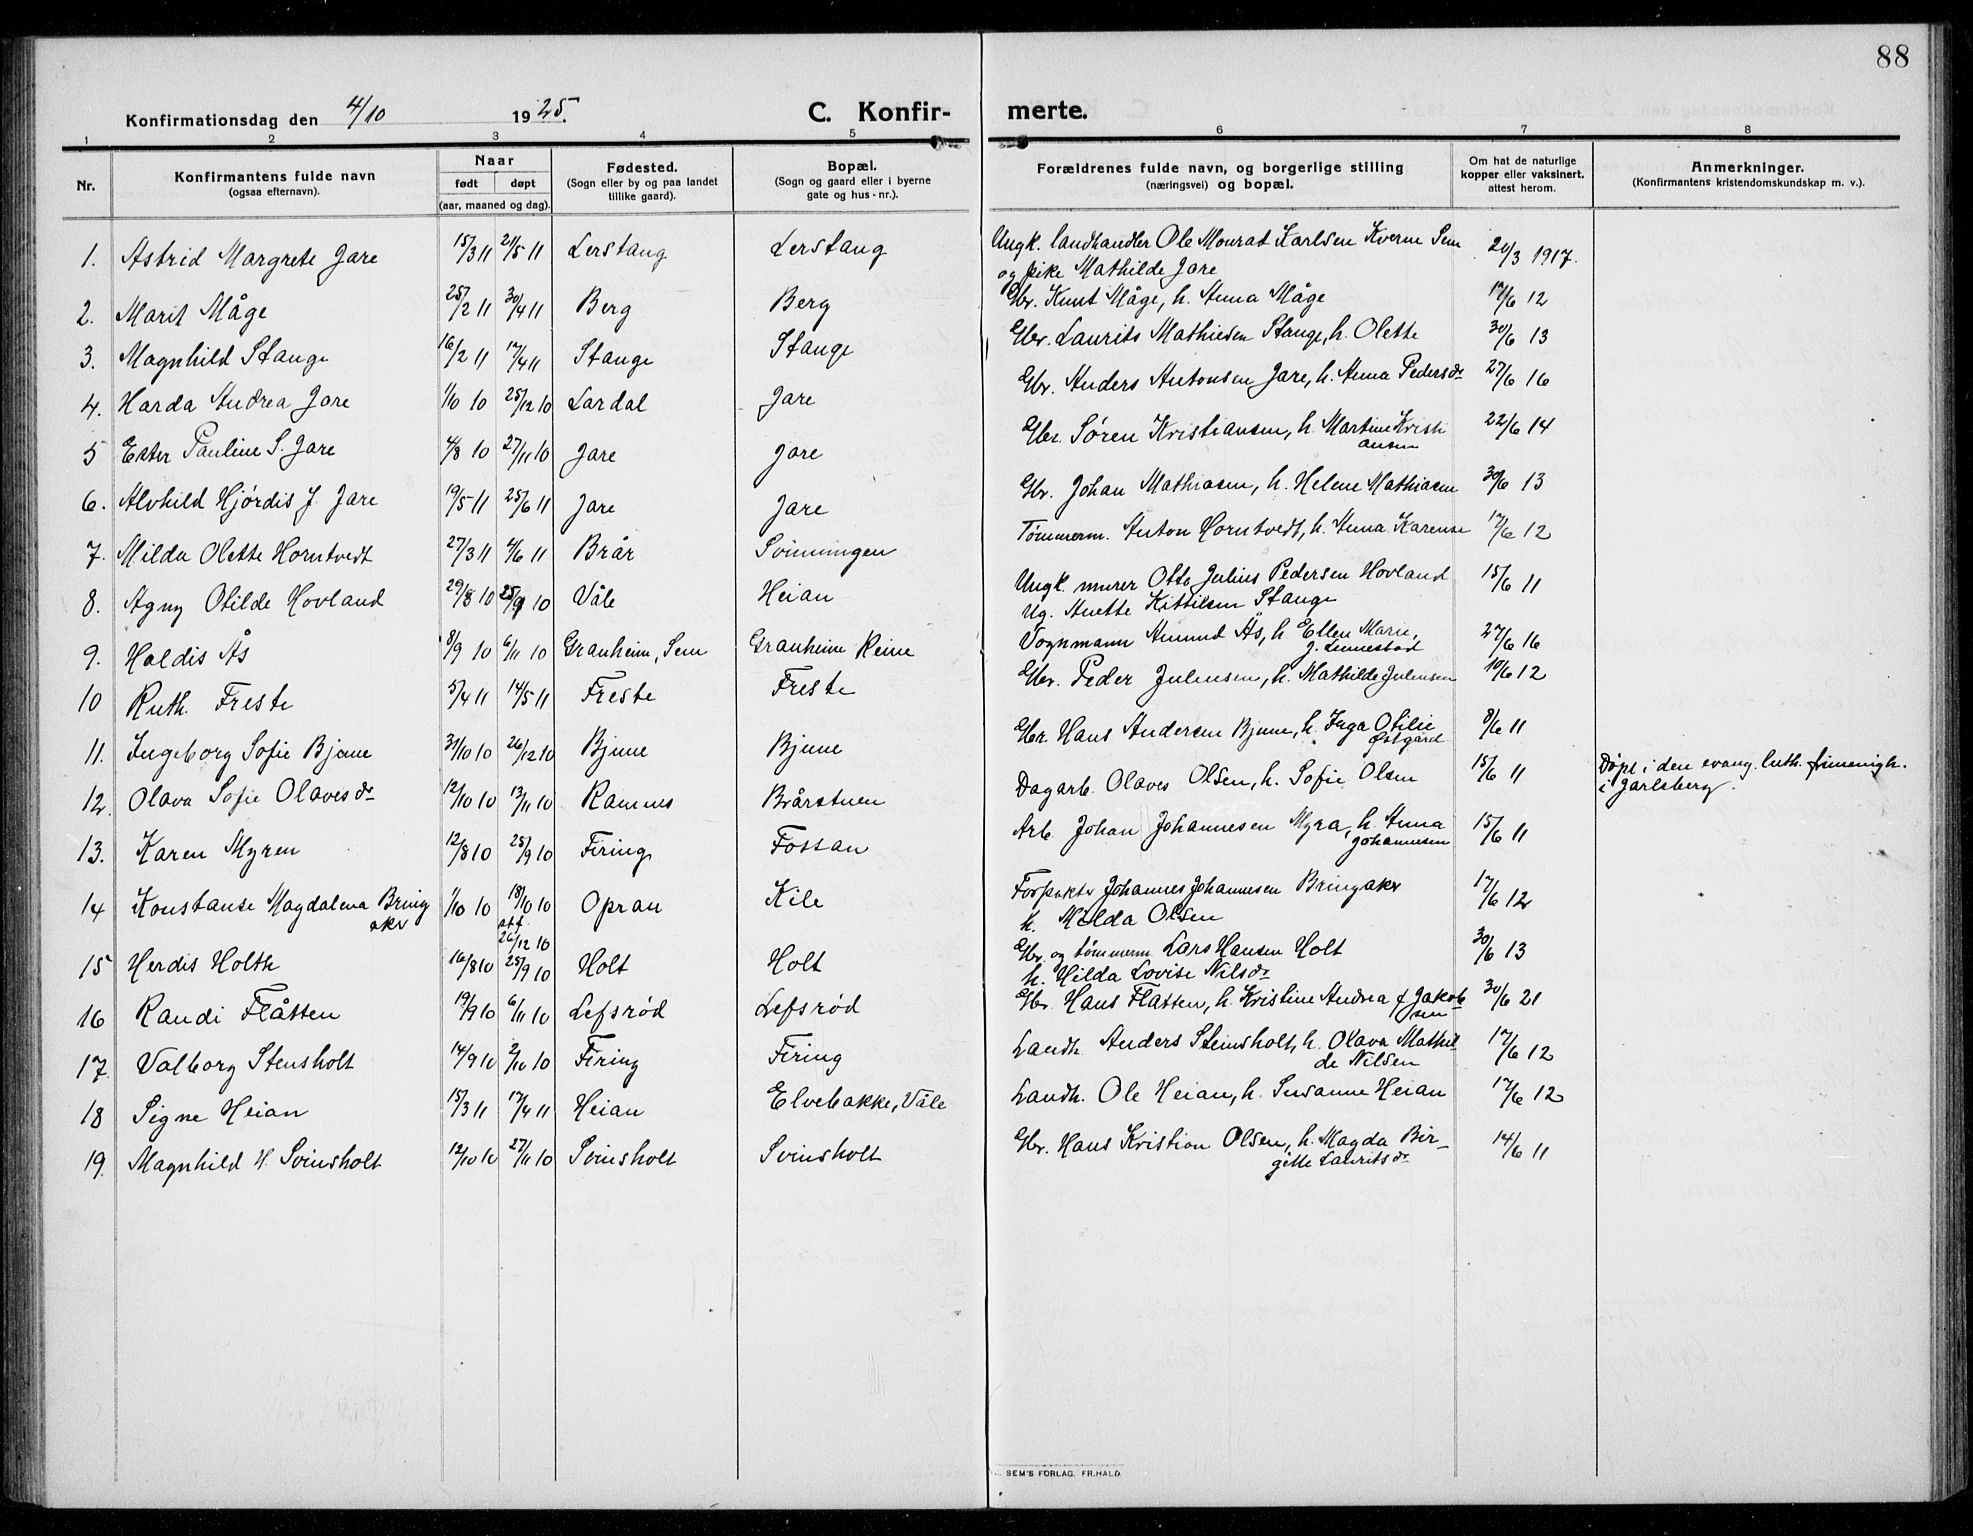 88
Konfirmationsdag den 4/10 1925.
C. Konfir-
merte.
1 2 3 4 5 6 7 8
Nr.
Konfirmantens fulde navn
(ogsaa efternavn).
Naar
født døpt
(aar, maaned og dag).
Fødested.
(Sogn eller by og paa landet
tillike gaard).
Bopæl.
(Sogn og gaard eller i byerne
gate og hus-nr.).
Forældrenes fulde navn, og borgerlige stilling
(næringsvei) og bopæl.
Om hat de naturlige
kopper eller vaksinert,
attest herom.
Anmerkninger.
(Konfirmantens kristendomskundskap m. v.).
1. Astrid Margrete Jare 15/3 11 21/5 11 Lerstang Lerstang Ungk. landhandler Ole Monrad Karlsen Kverne Sem 20/3 1917.
og pike Mathilde Jare
2. Marit Måge 25/2 11 30/4 11 Berg Berg Gbr. Knut Måge, h. Anna Måge 17/6 12
3. Magnhild Stange 16/2 11 17/4 11 Stange Stange Gbr. Laurits Mathiesen Stange, h. Olette 30/6 13
4. Harda Andrea Jare 1/10 10 25/12 10 Lardal Jare Gbr. Anders Antonsen Jare, h. Anna Pedersdr 27/6 16
5 Ester Pauline S. Jare 4/8 10 27/11 10 Jare Jare Gbr. Søren Kristiansen, h. Martine Kristi 22/6 14
ansen
6. Alvhild Hjørdis J. Jare 19/5 11 25/6 11 Jare Jare Gbr. Johan Mathiasen, h. Helene Mathiasen 30/6 13
7. Milda Olette Horntvedt 27/3 11 4/6 11 Brår Svinningen Tømmerm. Anton Horntvedt, h. Anna Karense 17/6 12
8. Agny Otilde Hovland 29/8 10 25/9 10 Våle Heian Ungk. murer Otto Julius Pedersen Hovland 15/6 11
Ug. Anette Kittilsen Stange
9. Haldis Ås 8/9 10 6/11 10 Granheim, Sem Granheim Reine Vognmann Amund Ås, h. Ellen Marie, 27/6 16
J. Linnestad
10 Ruth Freste 5/4 11 14/5 11 Freste Freste Gbr. Peder Julensen, h. Mathilde Julensen 10/6 12
11. Ingeborg Sofie Bjune 31/10 10 26/12 10 Bjune Bjune Gbr. Hans Andersen Bjune, h. Inga Otilie 8/6 11
Østgård
12. Olava Sofie Olavesdr 12/10 10 13/11 10 Ramnes Brårstuen Dagarb. Olaves Olsen, h. Sofie Olsen 15/6 11 Døpt i den evang. luth. frimenigh.
i Jarlsberg.
13. Karen Myren 12/8 10 25/9 10 Firing Fossan Arb. Johan Johannesen Myra, h. Anna 15/6 11
Johannesen
14 Konstanse Magdalena Bring 1/10 10 18/10 10 Opran Kile Forpakter Johannes Johannesen Bringaker 17/6 12
aker att. 26/12 10 h. Milda Olsen
15 Herdis Holth 16/8 10 25/9 10 Holt Holt Gbr. og tømmerm Lars Hansen Holt 30/6 13
h. Hilda Lovise Nilsdr
16 Randi Flåtten 19/9 10 6/11 10 Lefsrød Lefsrød Gbr. Hans Flatten, h. Kristine Andrea f Jakob 30/6 21
sen
17. Valborg Stensholt 14/9 10 2/10 10 Firing Firing Landh. Anders Steinsholt, h. Olava Mathil 17/6 12
de Nilsen
18 Signe Heian 15/3 11 17/4 11 Heian Elvebakke, Våle Landh. Ole Heian, h. Susanne Heian 17/6 12
19. Magnhild H. Svinsholt 12/10 10 27/11 10 Svinsholt Svinsholt Gbr. Hans Kristian Olsen, h. Magda Bir- 14/6 11
gitte Lauritsdr
SEM'S FORLAG, FR.HALD.